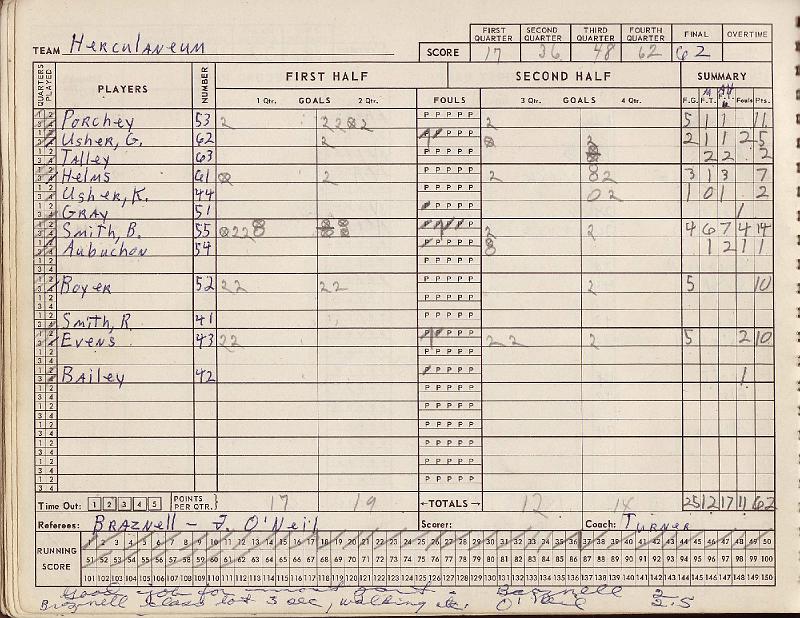 FIRST QUARTER SECOND QUARTER THIRD QUARTER FOURTH QUARTER FINAL OVERTIME
TEAM Herculaneum SCORE 17 36 48 62 62
QUARTERS PLAYED PLAYERS NUMBER FIRST HALF SECOND HALF SUMMARY
1 Qtr. GOALS 2 Qtr. FOULS 3 Qtr. GOALS 4 Qtr. F.G. F.T. Fouls Pts.
Porchey 53 2 P P P P P 2 5 1 1 11
Usher, G. 62 2 P P P P P 2 2 1 1 2 5
Talley 63 P P P P P 2 2 2
Helms 61 2 P P P P P 2 2 3 1 3 7
Usher, K. 44 P P P P P 0 2 1 0 1 2
Gray 51 P P P P P 1
Smith, B. 55 P P P P P 2 2 4 6 7 4 14
Aubuchon 54 P P P P P 1 2 1 1
Boyer 52 2 2 2 2 P P P P P 2 5 10
Smith, R 41 P P P P P
Evens 43 2 2 P P P P P 2 2 2 5 2 10
Bailey 42 P P P P P 1
Time Out: 1 2 3 4 5 POINTS PER QTR. 17 19 ←TOTALS→ 12 14 25 12 17 11 62
Referees: Braznell - J. O'Neil Scorer: Coach: Turner
RUNNING SCORE
1 2 3 4 5 6 7 8 9 10 11 12 13 14 15 16 17 18 19 20 21 22 23 24 25 26 27 28 29 30 31 32 33 34 35 36 37 38 39 40 41 42 43 44 45 46 47 48 49 50
51 52 53 54 55 56 57 58 59 60 61 62 63 64 65 66 67 68 69 70 71 72 73 74 75 76 77 78 79 80 81 82 83 84 85 86 87 88 89 90 91 92 93 94 95 96 97 98 99 100
101 102 103 104 105 106 107 108 109 110 111 112 113 114 115 116 117 118 119 120 121 122 123 124 125 126 127 128 129 130 131 132 133 134 135 136 137 138 139 140 141 142 143 144 145 146 147 148 149 150
Good job for most part - Braznell 2
Braznell 3 sec, walking etc. O'Neil 2.5